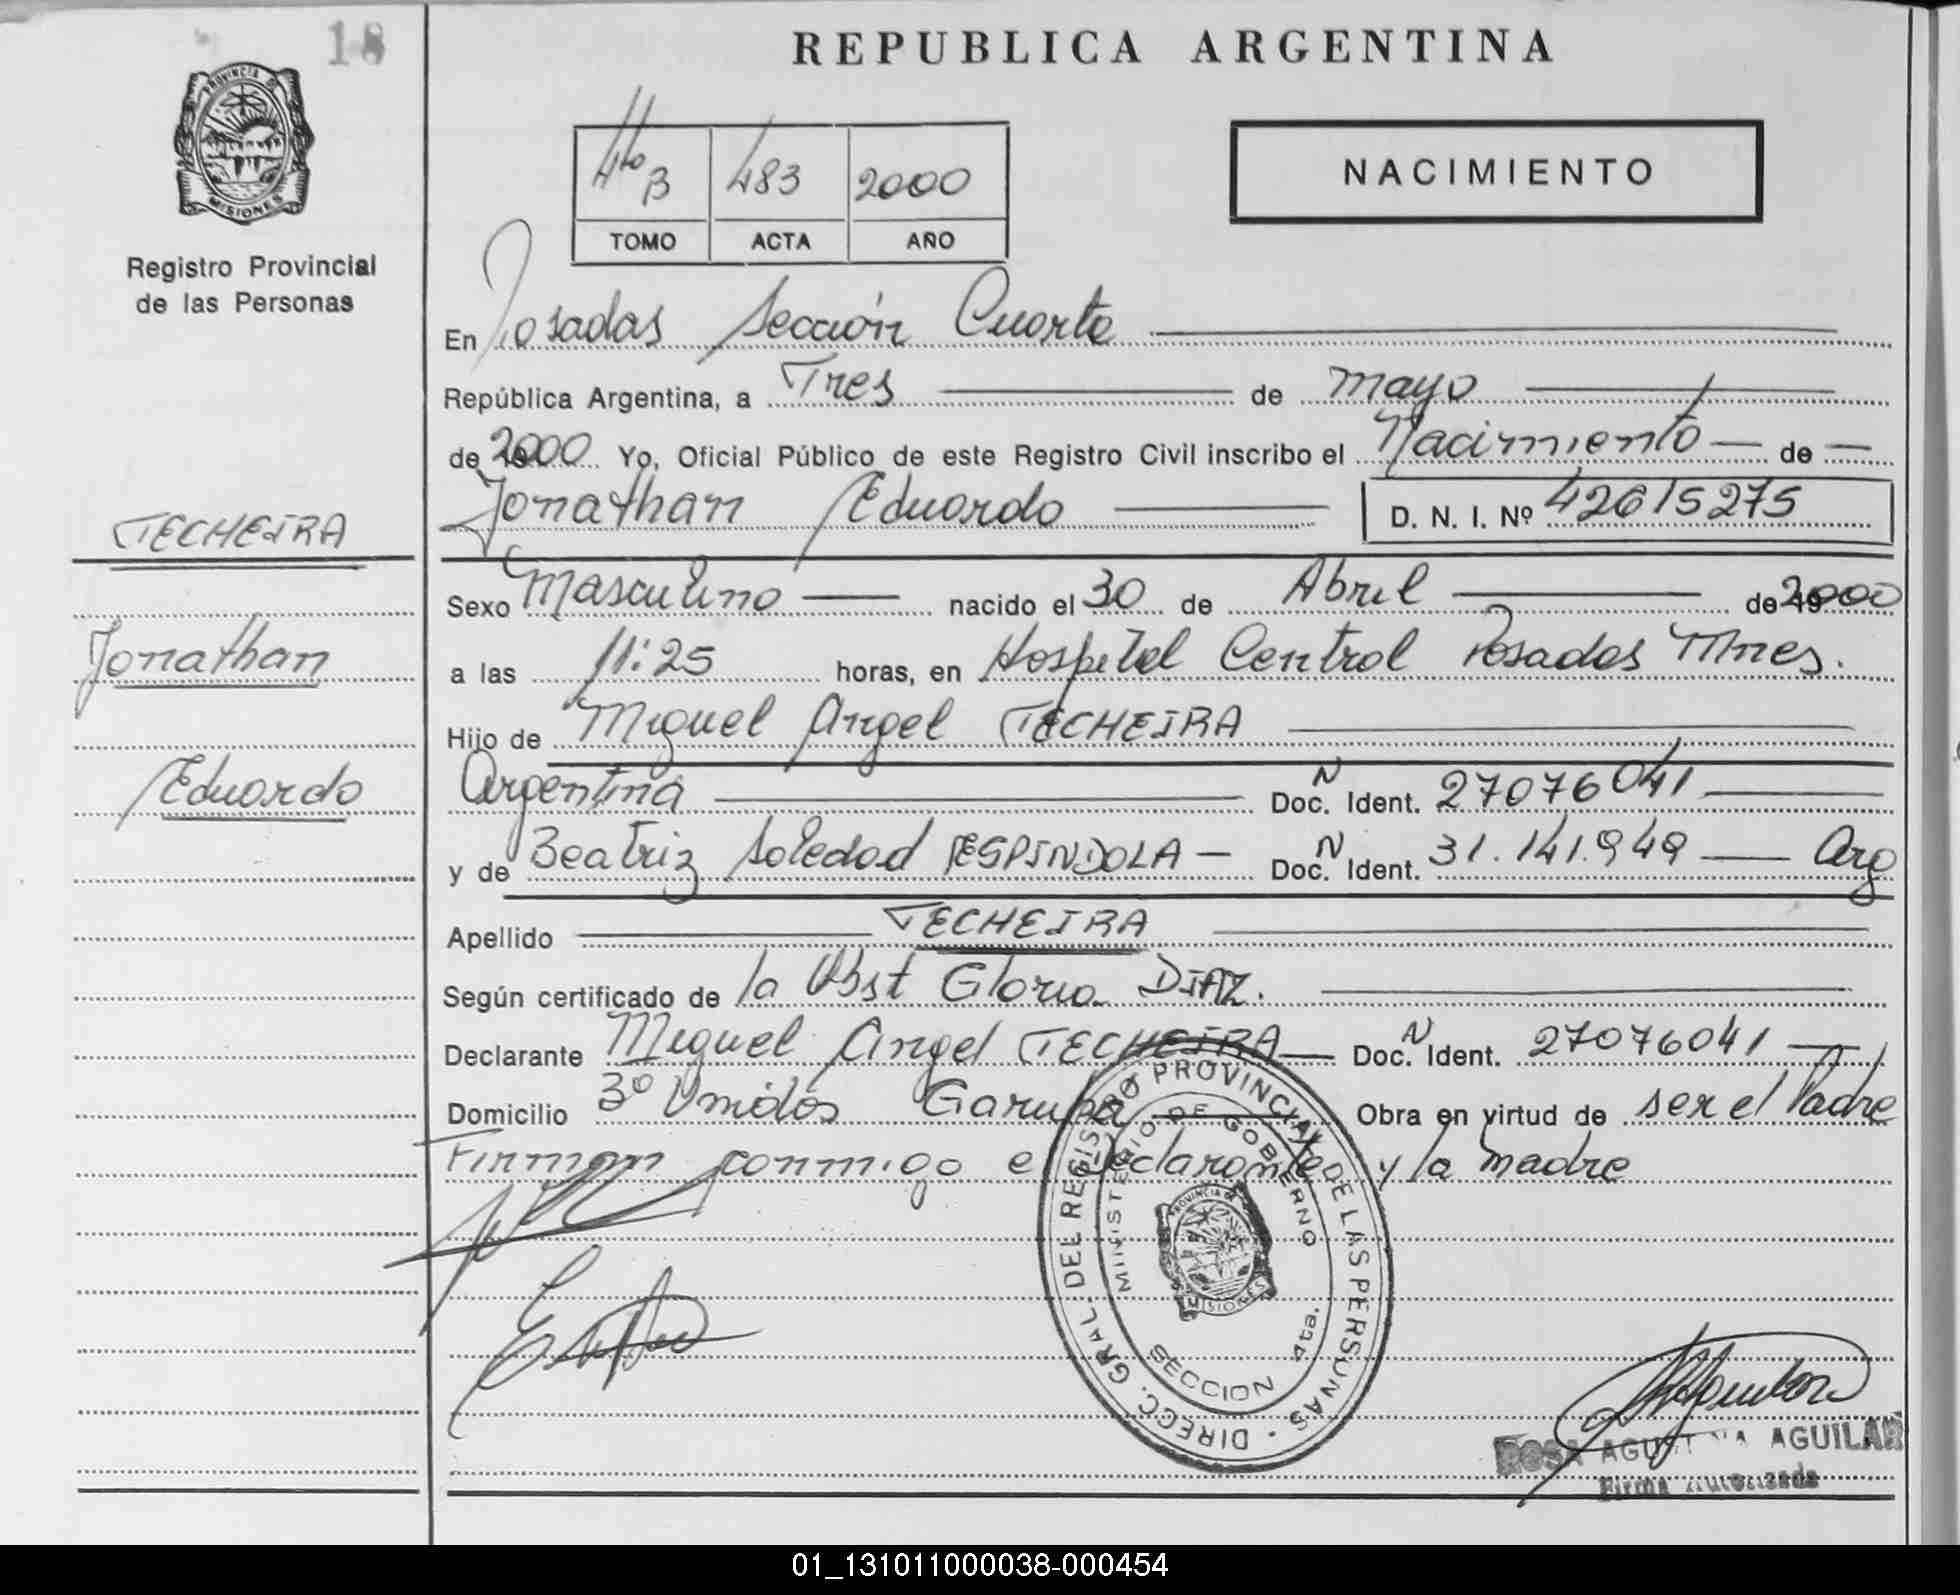 18
PROVINCIA DE
MISIONES
Registro Provincial
de las Personas
TECHEIRA
Jonathan
Eduardo
REPUBLICA ARGENTINA
4to B 483 2000
TOMO ACTA AÑO
NACIMIENTO
En Posadas Sección Cuarta
República Argentina, a Tres de mayo
de 2000 Yo, Oficial Público de este Registro Civil inscribo el Nacimiento de
Jonathan Eduardo D. N. I. Nº 42615275
Sexo Masculino nacido el 30 de Abril de 2000
a las 11:25 horas, en Hospital Central Posadas Mnes.
Hijo de Miguel Angel TECHEIRA
Argentina Doc. N Ident. 27076041
y de Beatriz Soledad ESPINDOLA Doc. N Ident. 31.141.949 Arg
Apellido TECHEIRA
Según certificado de la Obst Gloria DIAZ.
Declarante Miguel Angel TECHEIRA Doc. N Ident. 27076041
Domicilio 3º Unidos Garupa Obra en virtud de ser el Padre
Firman conmigo el Declarante y la madre
DIRECC. GRAL. DEL REGISTRO PROVINCIAL DE LAS PERSONAS
MINISTERIO DE GOBIERNO
PROVINCIA DE
MISIONES
SECCION 4ta.
ROSA AGUSTINA AGUILAR
Firma Autorizada
01_131011000038-000454